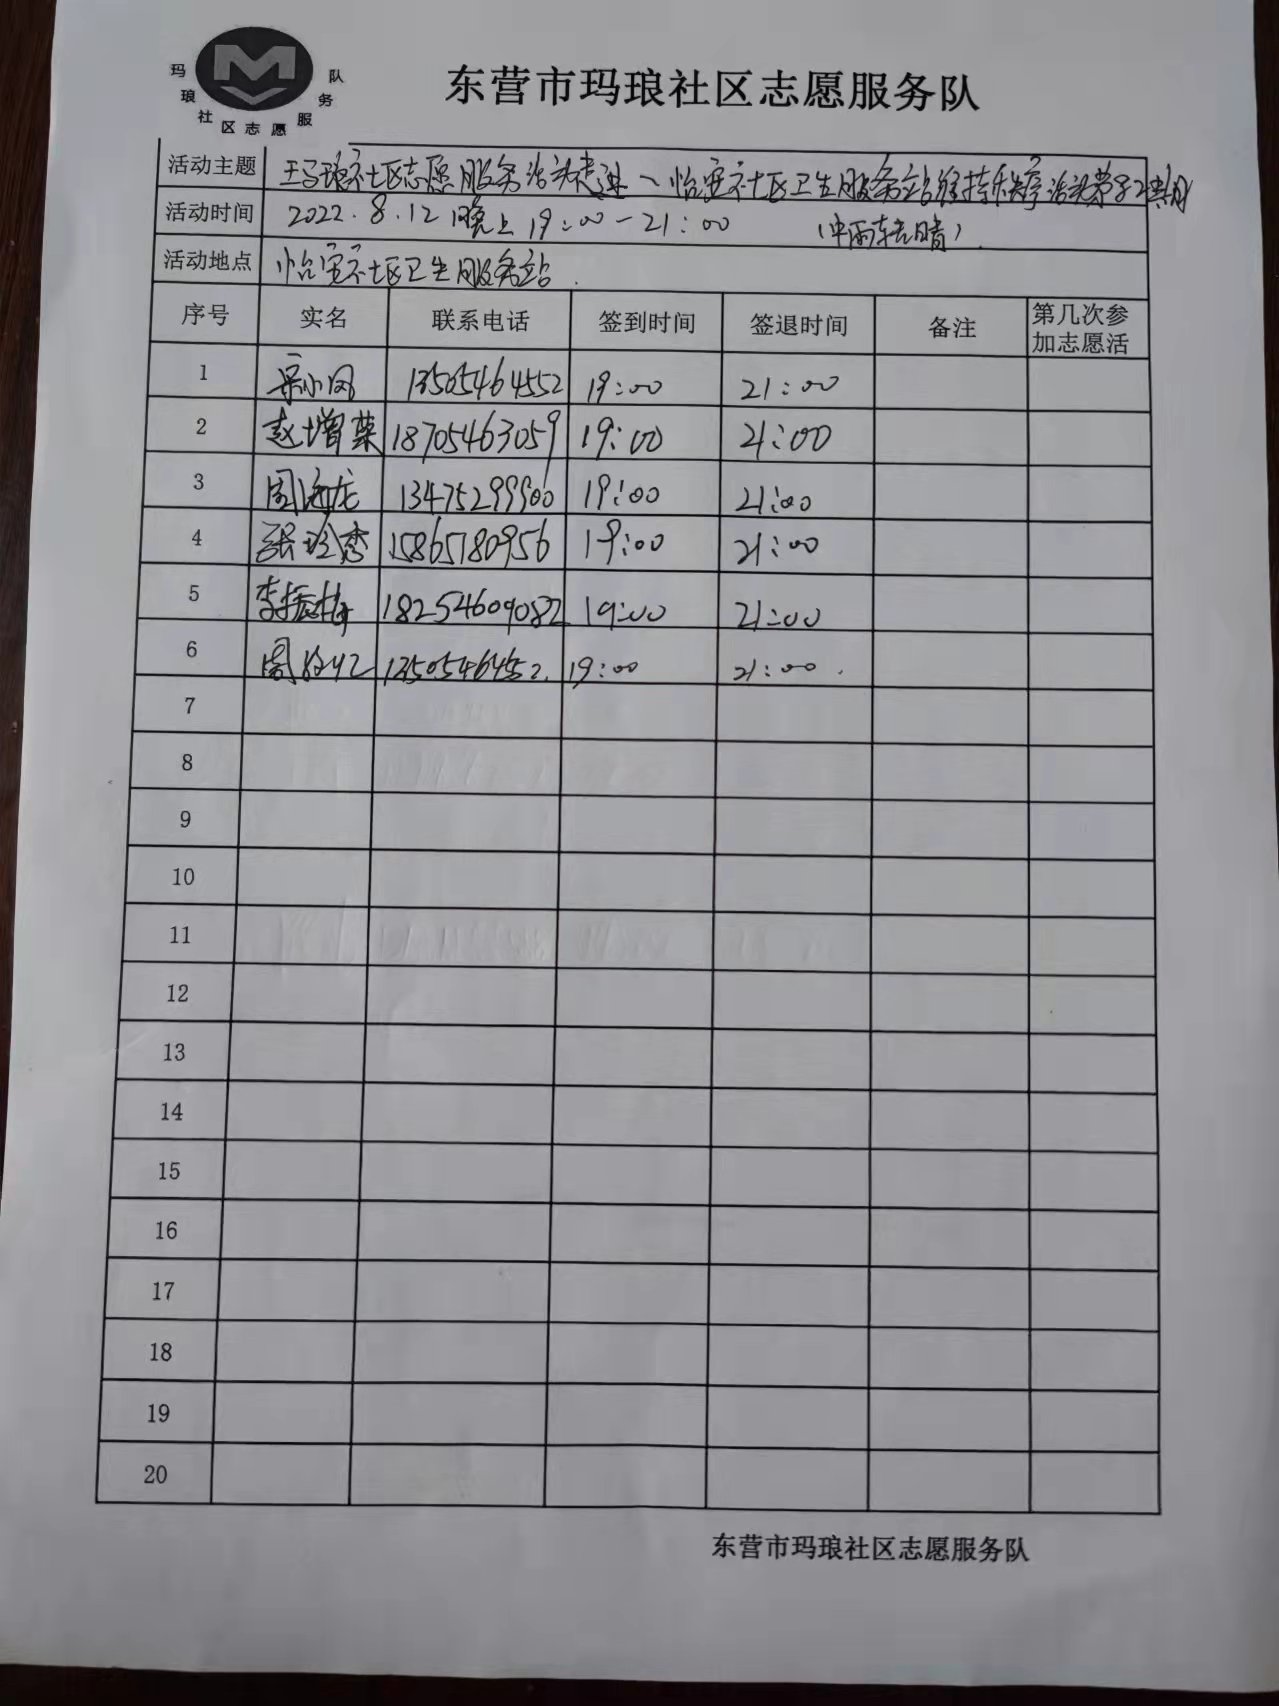 玛琅社区志愿服务队
东营市玛琅社区志愿服务队
活动主题 玛琅社区志愿服务活动走进一怡宽社区卫生服务站维持秩序活动第82期
活动时间 2022.8.12晚上19:00-21:00 (中雨转晴).
活动地点 怡宽社区卫生服务站.
序号 实名 联系电话 签到时间 签退时间 备注 第几次参
加志愿活
1 小凤 13505464552 19:00 21:00
2 赵增荣 18705463059 19:00 21:00
3 周海龙 13475299900 19:00 21:00
4 张玲秀 15865180956 19:00 21:00
5 李振梅 18254609082 19:00 21:00
6 周 19:00 21:00.
7
8
9
10
11
12
13
14
15
16
17
18
19
20
东营市玛琅社区志愿服务队